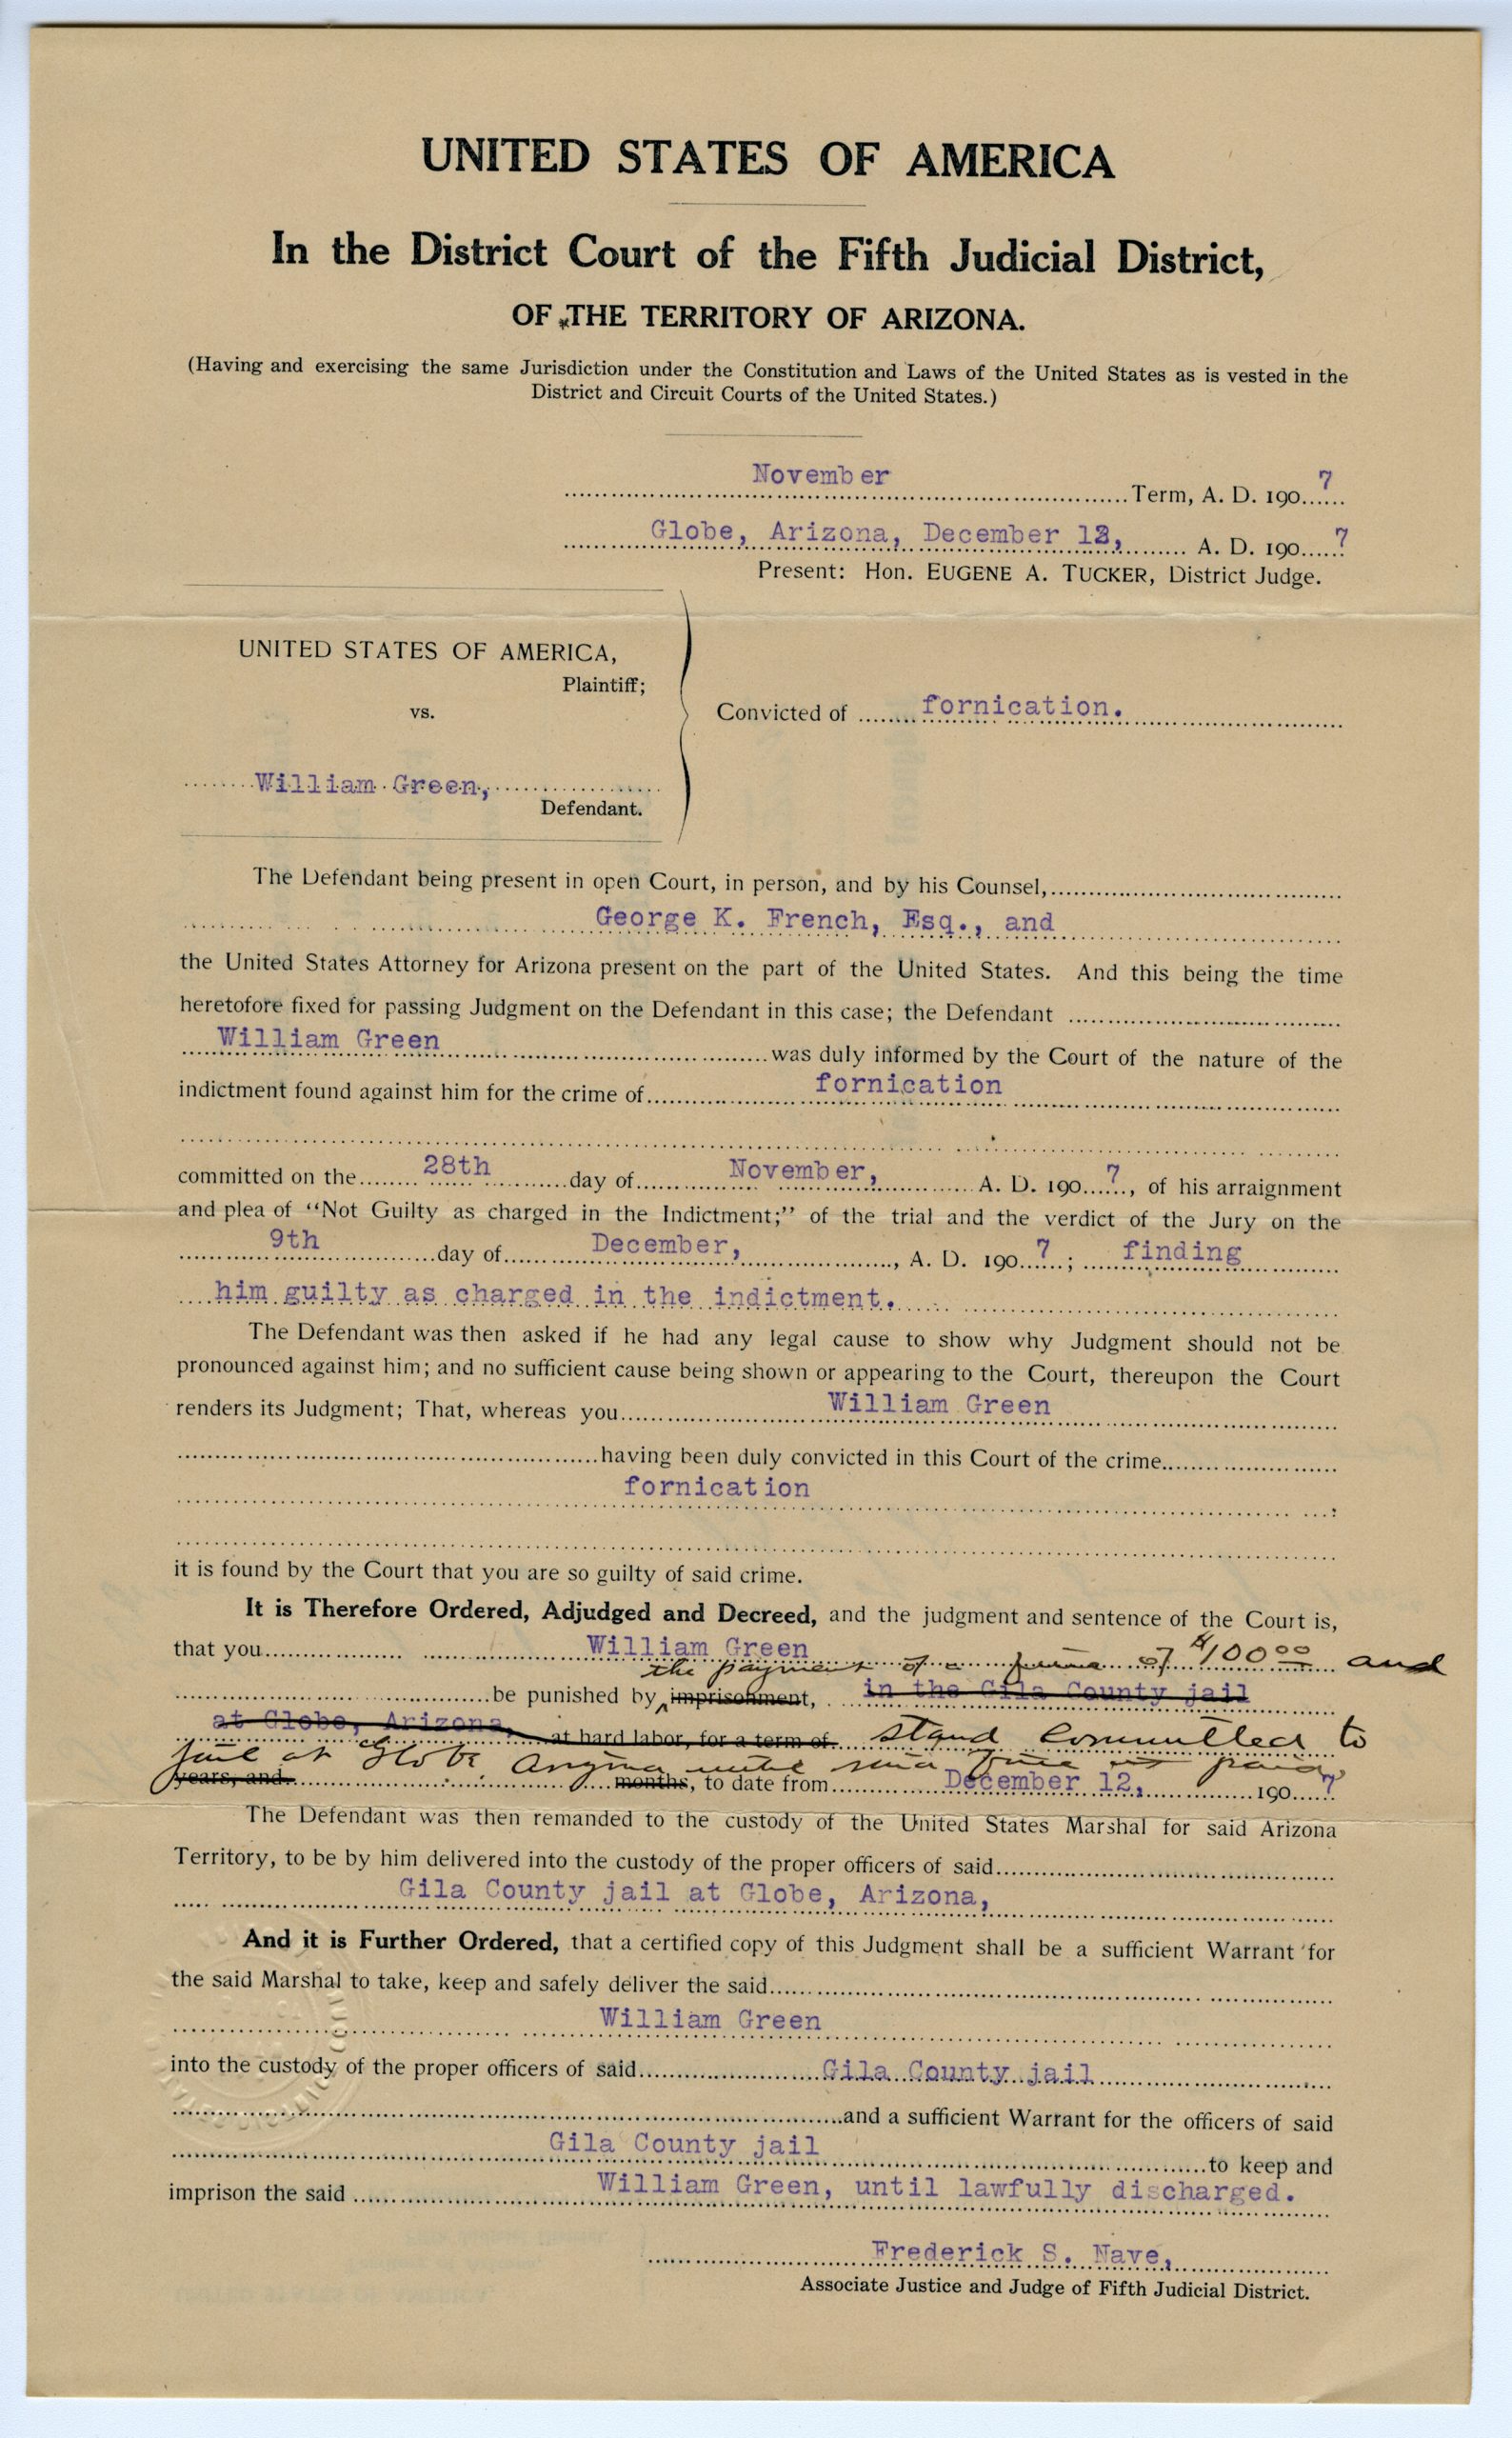 UNITED STATES OF AMERICA
In the District Court of the Fifth Judicial District,
OF THE TERRITORY OF ARIZONA.
(Having and exercising the same Jurisdiction under the Constitution and Laws of the United States as is vested in the
District and Circuit Courts of the United States.)
November Term, A. D. 1907
Globe, Arizona, December 12, A. D. 1907
Present: Hon. EUGENE A. TUCKER, District Judge.
UNITED STATES OF AMERICA,
Plaintiff;
vs.
Convicted of fornication.
William Green,
Defendant.
The Defendant being present in open Court, in person, and by his Counsel,
George K. French, Esq., and
the United States Attorney for Arizona present on the part of the United States. And this being the time
heretofore fixed for passing Judgment on the Defendant in this case; the Defendant
William Green was duly informed by the Court of the nature of the
indictment found against him for the crime of fornication
committed on the 28th day of November, A. D. 1907, of his arraignment
and plea of "Not Guilty as charged in the Indictment;" of the trial and the verdict of the Jury on the
9th day of December, A. D. 1907; finding
him guilty as charged in the indictment.
The Defendant was then asked if he had any legal cause to show why Judgment should not be
pronounced against him; and no sufficient cause being shown or appearing to the Court, thereupon the Court
renders its Judgment; That, whereas you William Green
having been duly convicted in this Court of the crime
fornication :
it is found by the Court that you are so guilty of said crime.
It is Therefore Ordered, Adjudged and Decreed, and the judgment and sentence of the Court is,
that you William Green
the payment of a fine of $100 00 and
be punished by imprisonment, in the Gila County jail
at Globe, Arizona, at hard labor, for a term of stand committed to
jail at Globe Arizona until said fine is paid,
years, and months, to date from December 12, 1907
The Defendant was then remanded to the custody of the United States Marshal for said Arizona
Territory, to be by him delivered into the custody of the proper officers of said
Gila County jail at Globe, Arizona,
And it is Further Ordered, that a certified copy of this Judgment shall be a sufficient Warrant for
the said Marshal to take, keep and safely deliver the said
William Green
into the custody of the proper officers of said Gila County jail
and a sufficient Warrant for the officers of said
Gila County jail to keep and
imprison the said William Green, until lawfully discharged.
Frederick S. Nave,
Associate Justice and Judge of Fifth Judicial District.